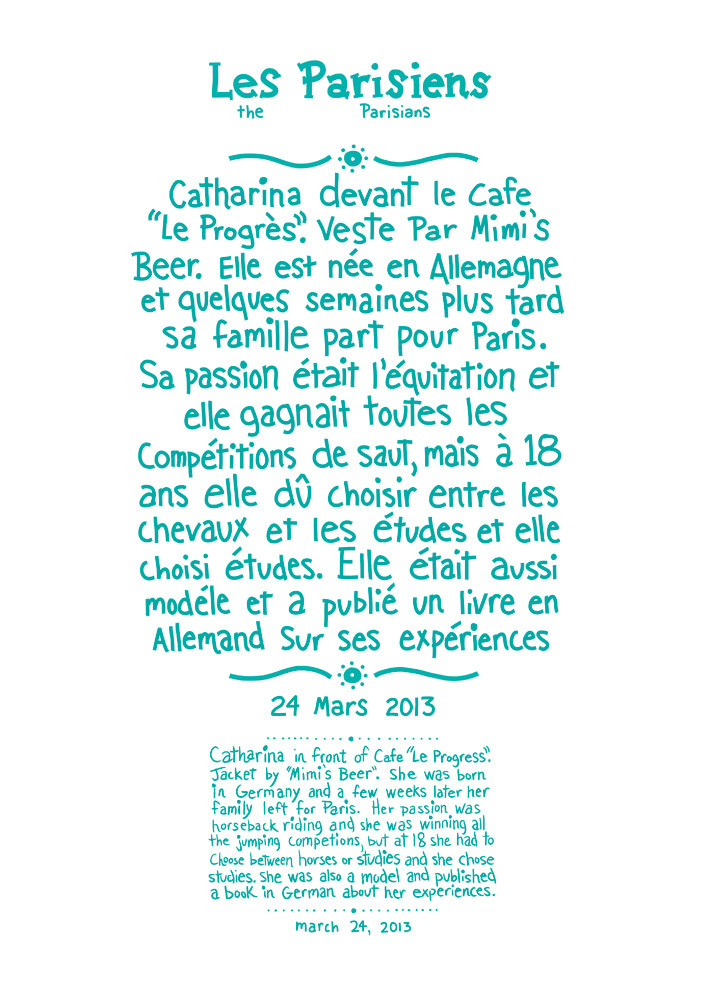 Les Parisiens
the Parisians
Catharina devant le Cafe
"Le Progrès". Veste Par Mimi's
Beer. Elle est née en Allemagne
et quelques semaines plus tard
sa famille part pour Paris.
Sa passion était l'équitation et
elle gagnait toutes les
Compétitions de saut, mais à 18
ans elle dû choisir entre les
chevaux et les études et elle
choisi études. Elle était aussi
modéle et a publié un livre en
Allemand Sur ses expériences
24 Mars 2013
Catharina in front of Cafe "Le Progress".
Jacket by "Mimi's Beer". She was born
in Germany and a few weeks later her
family left for Paris. Her passion was
horseback riding and she was winning all
the jumping competions, but at 18 she had to
Choose between horses or studies and she chose
studies. She was also a model and published
a book in German about her experiences.
march 24, 2013